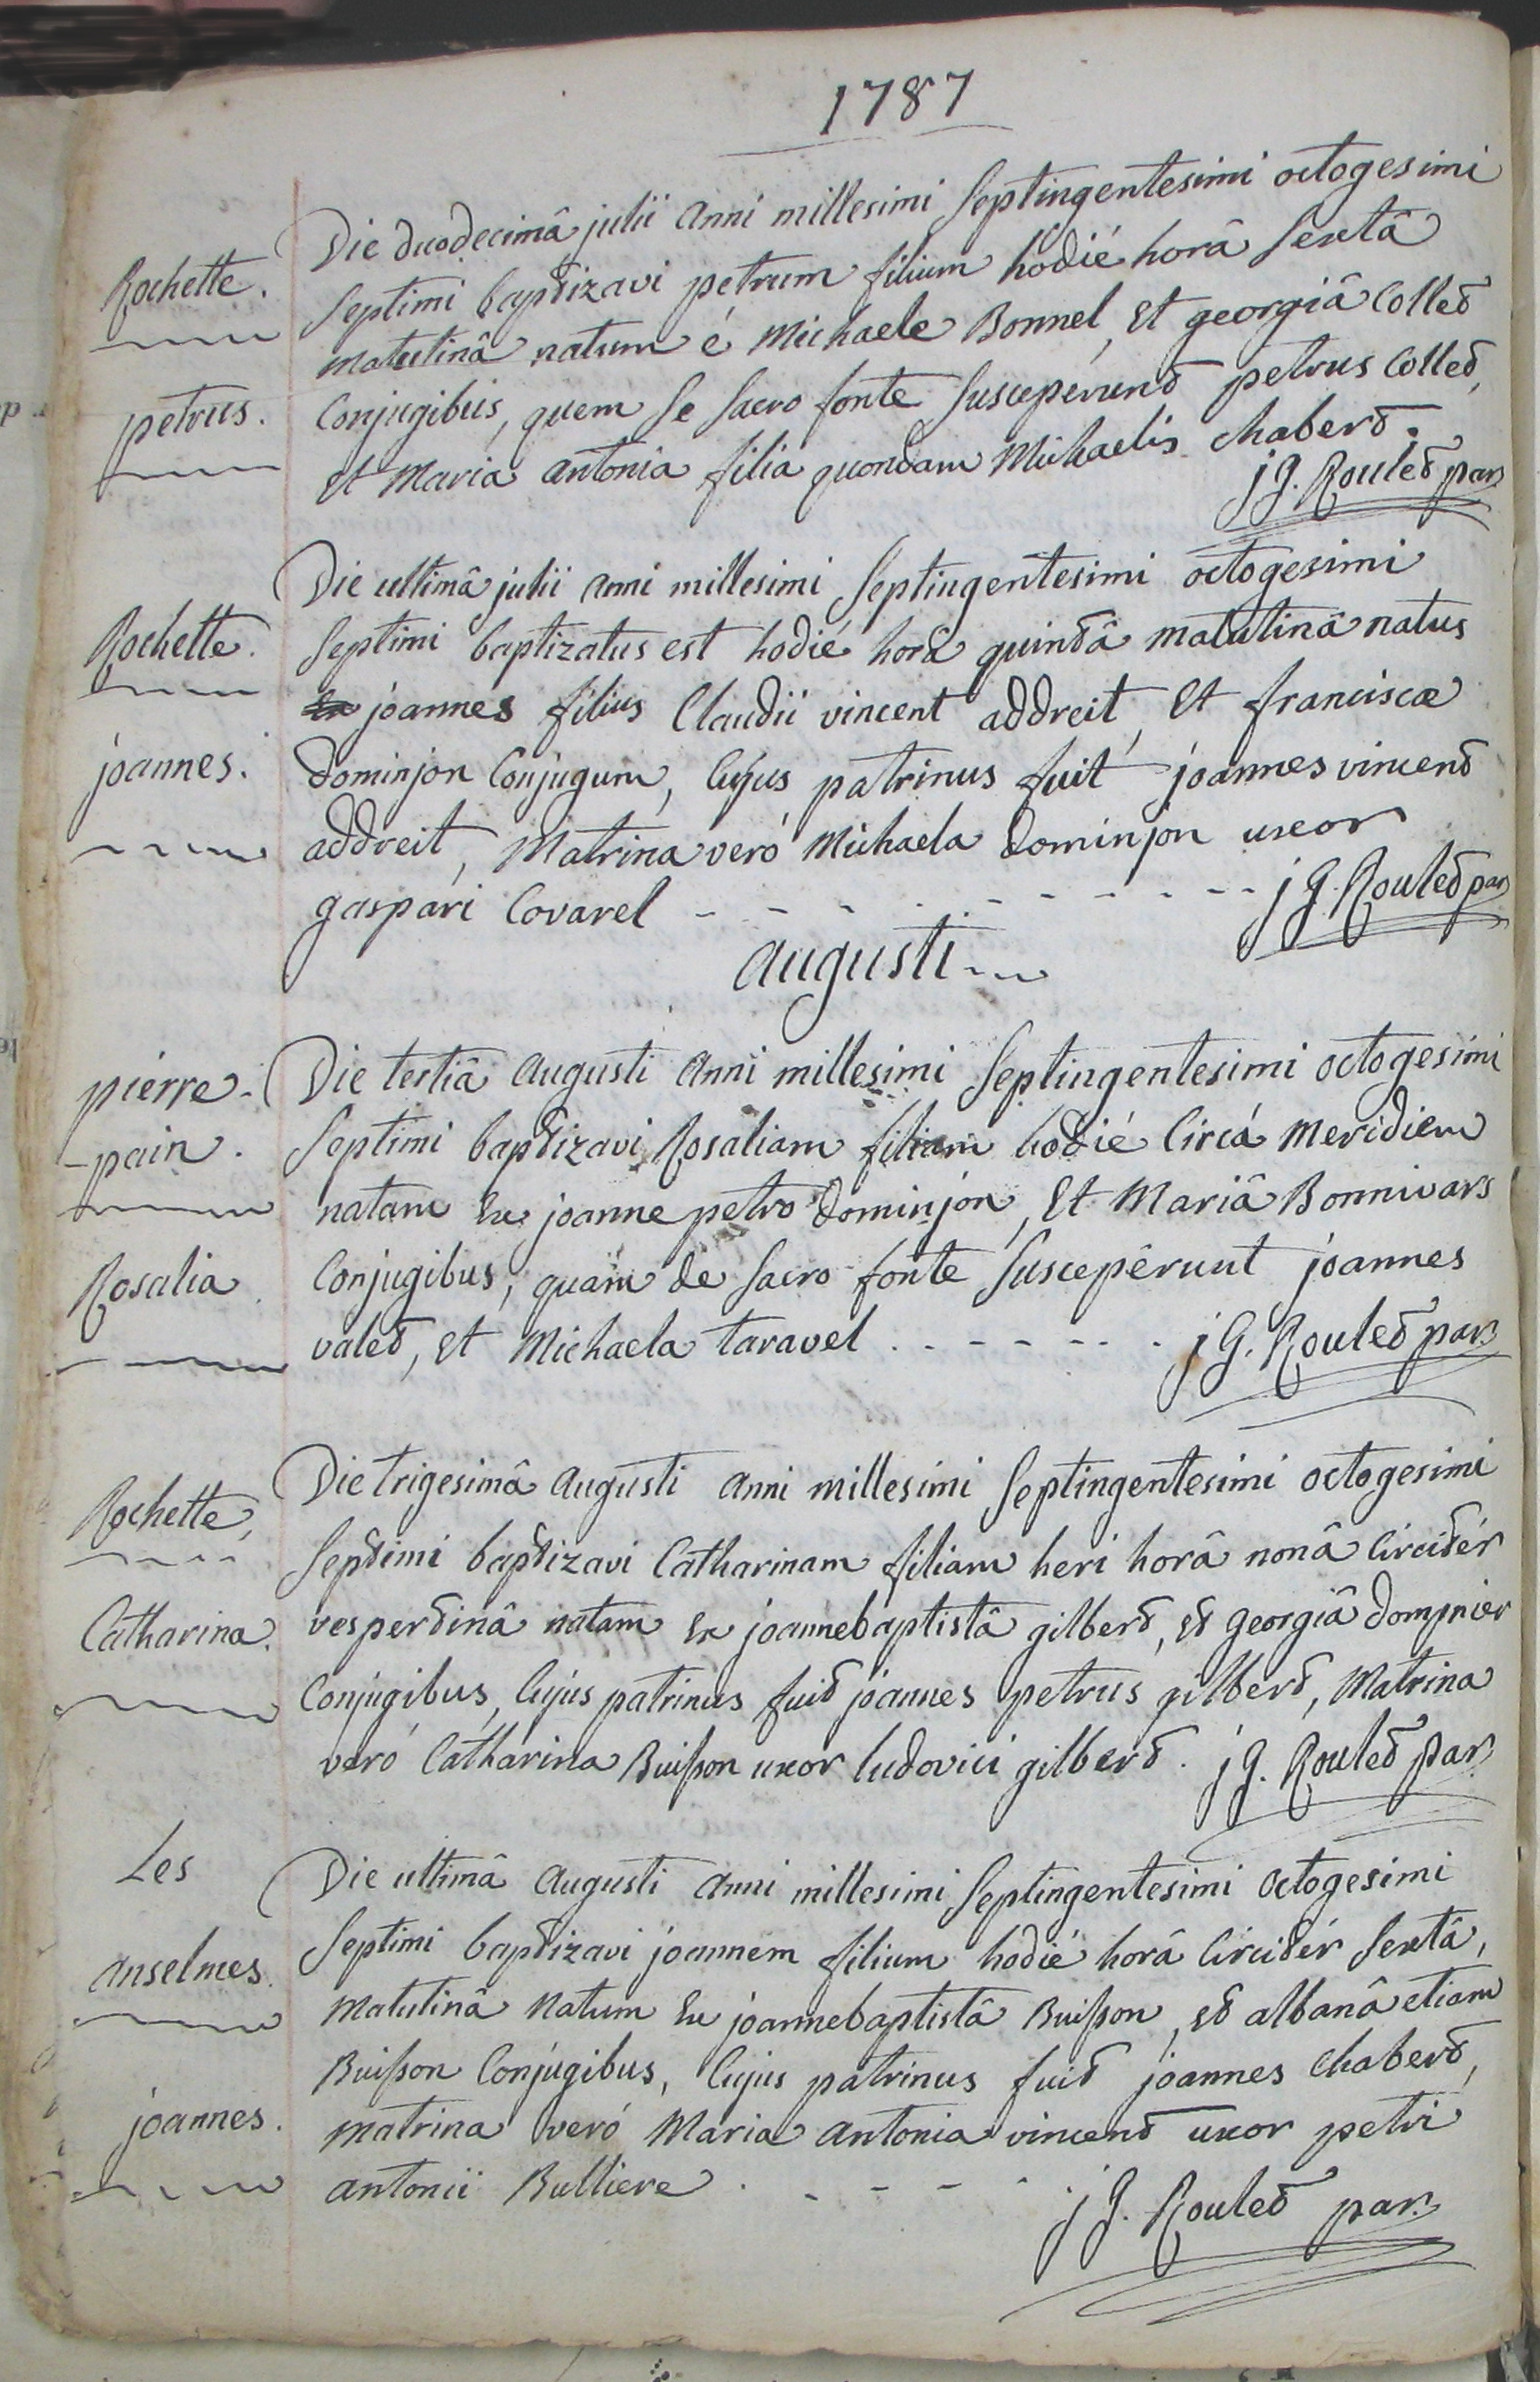 1787
Rochette.
petrus.
Die duodecimâ julii anni millesimi septingentesimi octogesimi
septimi baptizavi petrum filium hodié horâ sextâ
matutinâ natum é Michaele Bonnel, et georgiâ Collet
Conjugibus, quem se sacro fonte susceperunt petrus Collet,
et Maria antonia filia quondam Michaelis chabert.
j G. Roulet par
Rochette.
joannes.
Die ultimâ julii anni millesimi septingentesimi octogesimi
septimi baptizatus est hodié horâ quintâ matutinâ natus
joannes filius Claudii vincent addreit, et franciscæ
dominjon Conjugum, Cujus patrinus fuit joannes vincent
addreit, Matrina veró Michaela dominjon uxor
gaspari Covarel - - - - - - - - j G. Roulet par
augusti
pierre-
-pain.
Rosalia
Die tertiâ augusti anni millesimi septingentesimi octogesimi
septimi baptizavi Rosaliam filiam hodié Circá meridiem
natam ex joanne petro dominjon, et Mariâ Bonnivars
Conjugibus, quam de sacro fonte susceperunt joannes
valet, et Michaela taravel . - - - - - . j G. Roulet par
Rochette,
Catharina.
Die trigesimâ augusti anni millesimi septingentesimi octogesimi
septimi baptizavi Catharinam filiam heri horâ nonâ Circitér
vespertinâ natam ex joannebaptistâ gilbert, et georgiâ dompnier
Conjugibus, Cujus patrinus fuit joannes petrus gilbert, Matrina
veró Catharina Buisson uxor ludovici gilbert. j G. Roulet par
Les
anselmes.
joannes.
Die ultimâ augusti anni millesimi septingentesimi octogesimi
septimi baptizavi joannem filium hodié horâ Circitér sextâ,
matutinâ natum ex joannebaptistâ Buisson, et albanâ etiam
Buisson Conjugibus, Cujus patrinus fuit joannes chabert,
matrina veró Maria antonia vincent uxor petri
antonii Bulliere . - - - - .
j G. Roulet par.